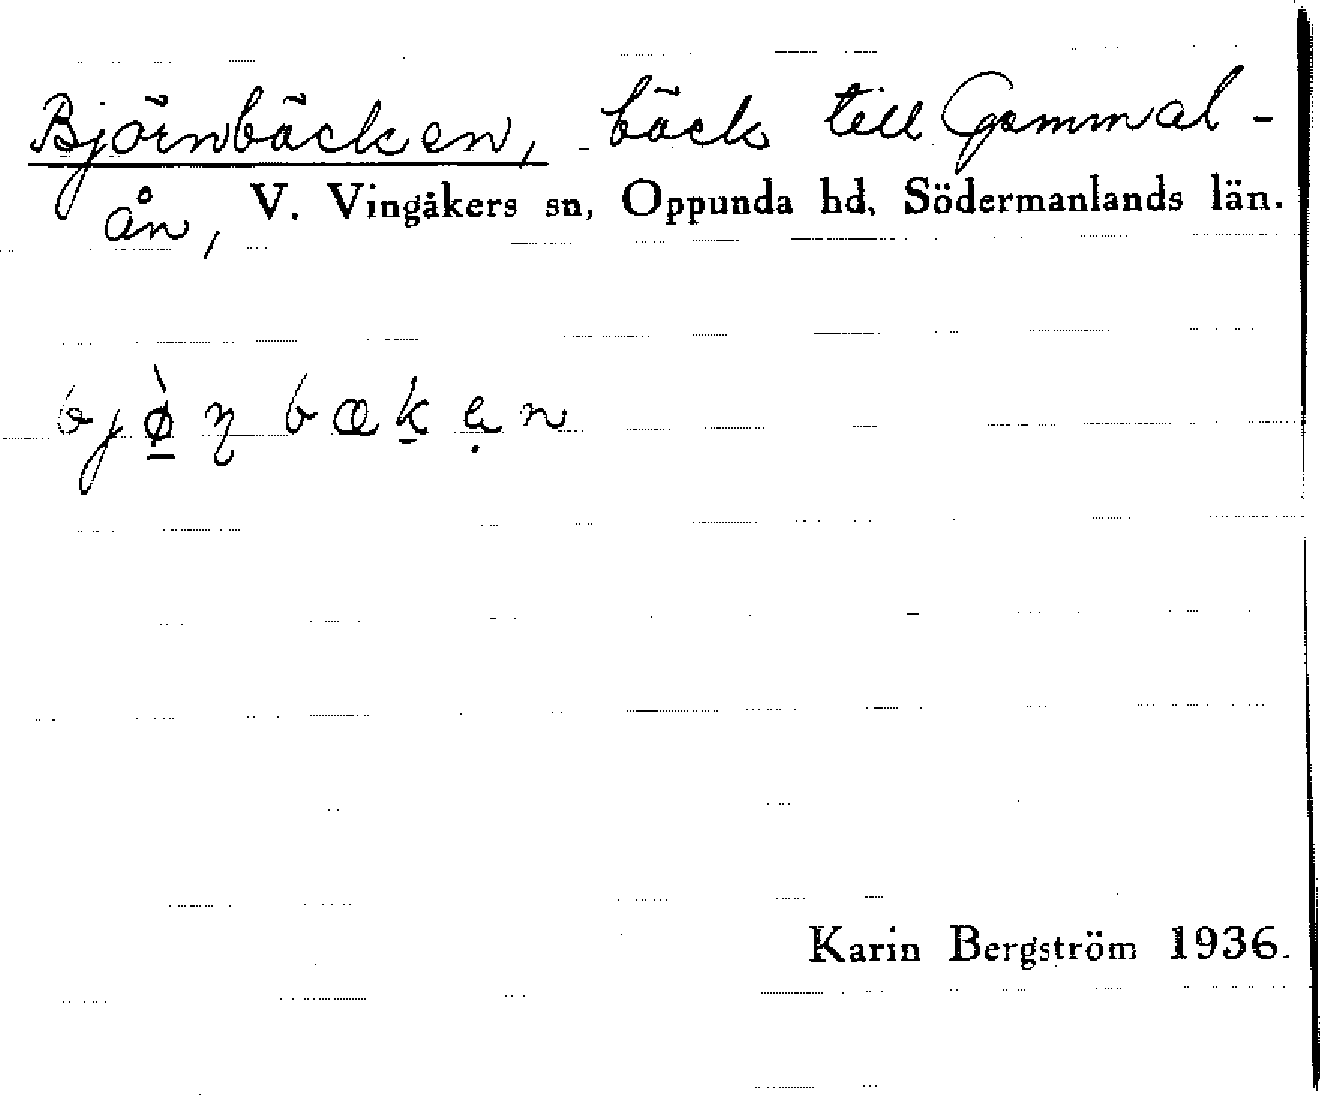 Björnbäcken, bäck till Gammal-
ån, V. Vingåkers sn, Oppunda hd, Södermanlands län.
bjø̲̀ɳbæk̲ẹn
Karin Bergström 1936.